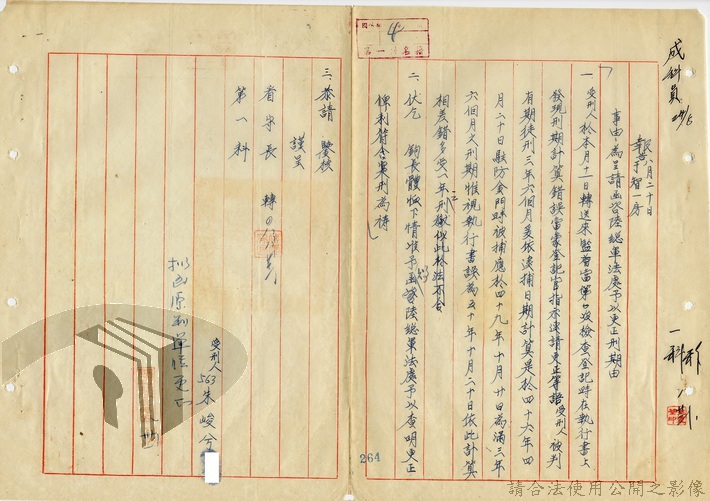 成科員
報告 八月二十日
于智一房
事由:為呈請函咨陸總軍法處予以更正刑期由
一、受刑人於本月十一日轉送來監着當第口沒檢查登記時在執行書上
發現刑期計算錯誤當蒙登記官指示速請更正等語受刑人被判
有期徒刑三年六個月爰依逮捕日期計算是於四十六年四
月二十日駐防金門時被捕應於四十九年十月廿日為滿三年
六個月之刑期惟視執行書誤為五十年十月二十日依此計算
相差錯多受一年刑徽似此於法不合
二、伏乞 鈞長體恤下情准予函咨陸總軍法處予以查明更正
俾利符合案刑為禱
三、恭請 鑒核
謹呈
看守長 轉
第一科
受刑人 563 朱峻
擬函原判單位更正
264
請合法使用公開之影像